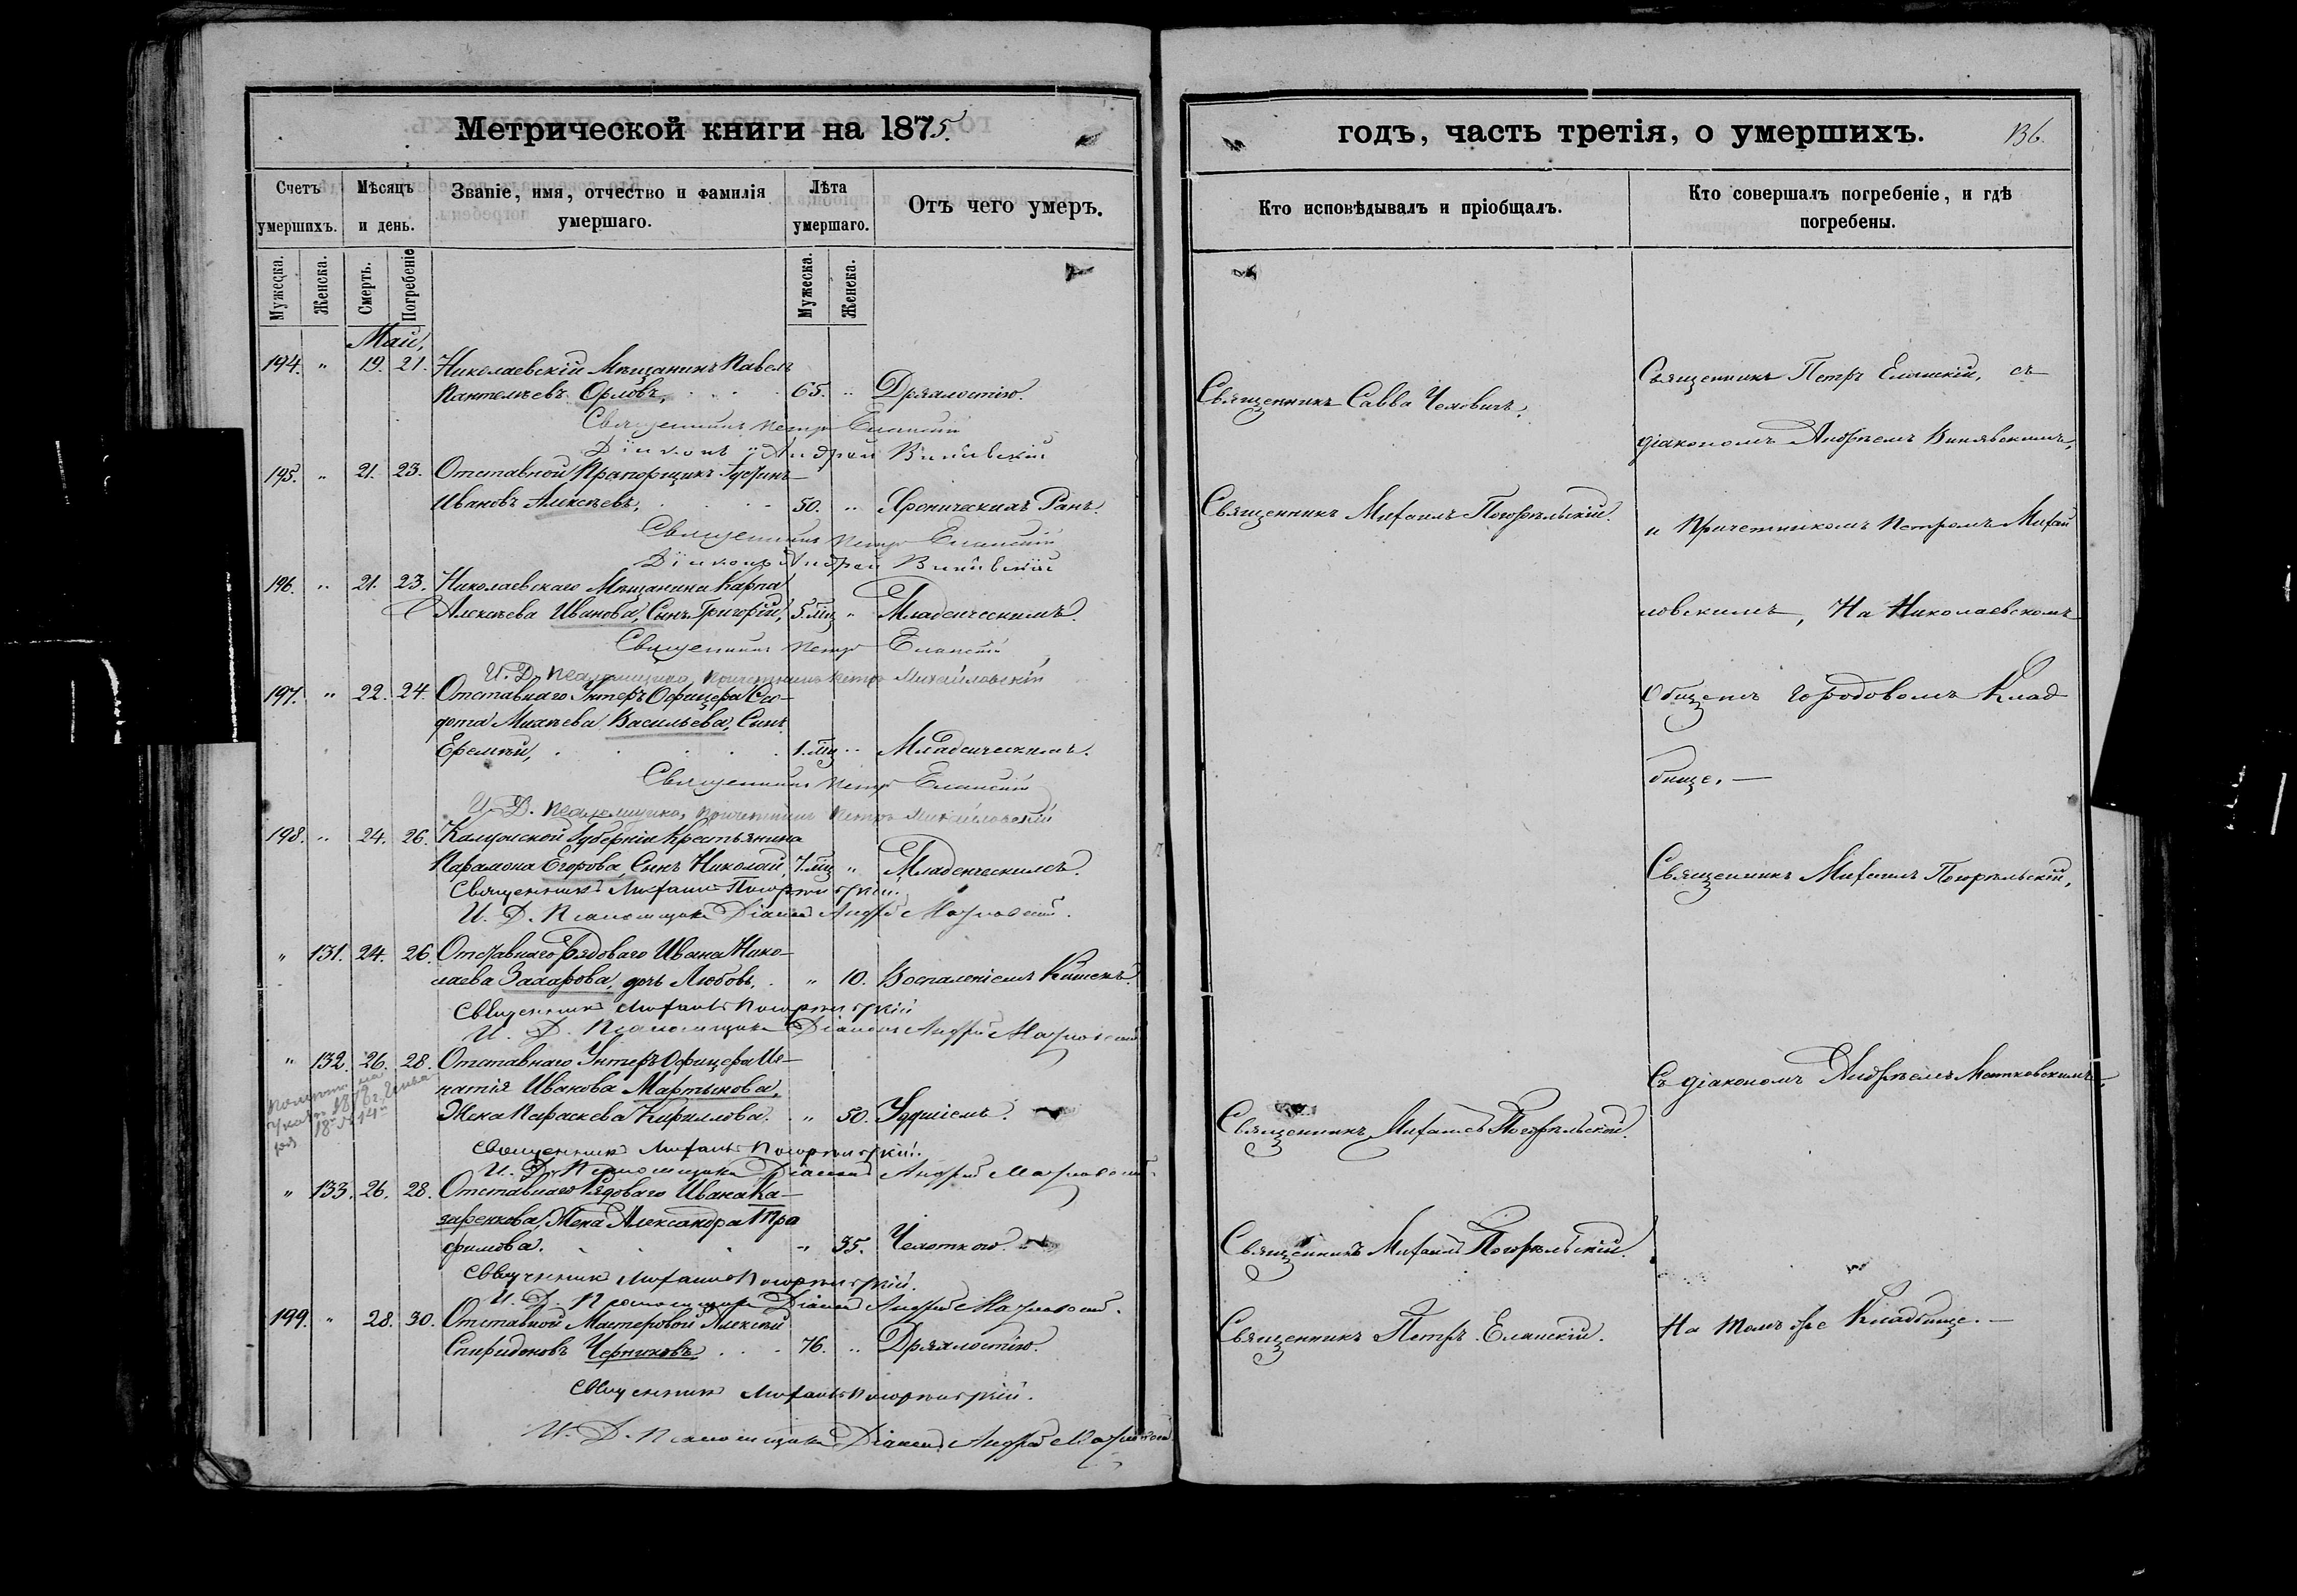 Метрической книги на 1875.
Счетъ умершихъ.
Мѣсяцъ и день.
Званіе, имя, отчество и фамилія умершаго.
Лѣта умершаго.
Отъ чего умеръ.
Мужеска.
Женска.
Смерть.
Погребеніе
Мужеска.
Женска.
Май,
194. " 19. 21. Николаевскій Мѣщанинъ Павелъ
Пантелѣевъ Орловъ, 65. " Дряхлостію.
Священникъ Петръ Еланскій
Діаконъ Андрей
195. " 21. 23. Отставной Прапорщикъ
Ивановъ Алексѣевъ, 50. " Хроническихъ Ранъ.
Священникъ Петръ Еланскій
Діаконъ Андрей
196. " 21. 23. Николаевскаго Мѣщанина Карпа
Алексѣева Иванова, Сынъ Григорій, 5. мц " Младенческимъ.
Священникъ Петръ Еланскій
И. Д. Псаломщика, Причетникъ Петръ Михайловскій
197. " 22. 24. Отставнаго Унтеръ Офицера Ѳео-
дота Михѣева Васильева, Сынъ
Еремѣй, 1. мц " Младенческимъ.
Священникъ Петръ Еланскій
И. Д. Псаломщика, Причетникъ Петръ Михайловскій
198. " 24. 26. Калужской Губерніи Крестьянина
Парамона Егорова, Сынъ Николай, 7. мц " Младенческимъ.
Священникъ Михаилъ Погорѣльскій.
И. Д. Псаломщика Діаконъ Андрей
" 131. 24. 26. Отставнаго Рядоваго Ивана Нико-
лаева Захарова, дочь Любовь, " 10. Воспаленіемъ Кишекъ.
Священникъ Михаилъ Погорѣльскій
И. Д. Псаломщика Діаконъ Андрей
" 132. 26. 28. Отставнаго Унтеръ Офицера Иг-
натія Иванова Мартынова,
Жена Параскева Кириллова. " 50. Удушіемъ.
Священникъ Михаилъ Погорѣльскій.
И. Д. Псаломщика Діаконъ Андрей
" 133. 26. 28. Отставнаго Рядоваго Ивана На-
заренкова, Жена Александра Тро
фимова. " 35. Чахоткою.
Священникъ Михаилъ Погорѣльскій.
И. Д. Псаломщика Діаконъ Андрей
199. " 28. 30. Отставной Мастеровой Алексѣй
Спиридоновъ Черниховъ 76. " Дряхлостію.
Священникъ Михаилъ Погорѣльскій.
И. Д. Псаломщика Діаконъ Андрей
годъ, часть третія, о умершихъ.
136.
Кто исповѣдывалъ и пріобщалъ.
Кто совершалъ погребеніе, и гдѣ погребены.
Священникъ Савва
Священникъ Михаилъ Погорѣльскій.
Священникъ Михаилъ Погорѣльскій.
Священникъ Михаилъ Погорѣльскій.
Священникъ Петръ Еланскій.
Священникъ Петръ Еланскій, съ
діакономъ Андреемъ
и Причетникомъ Петромъ Михай
ловскимъ, На Николаевскомъ
Общемъ городовомъ Клад
бище. —
Священникъ Михаилъ Погорѣльскій,
Съ діакономъ Андреемъ
На томъ же Кладбище. —